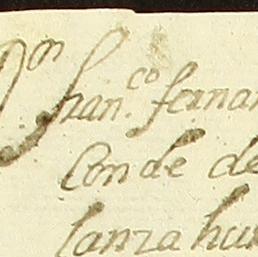 Don fran.co fernan
Conde de
lanza hu